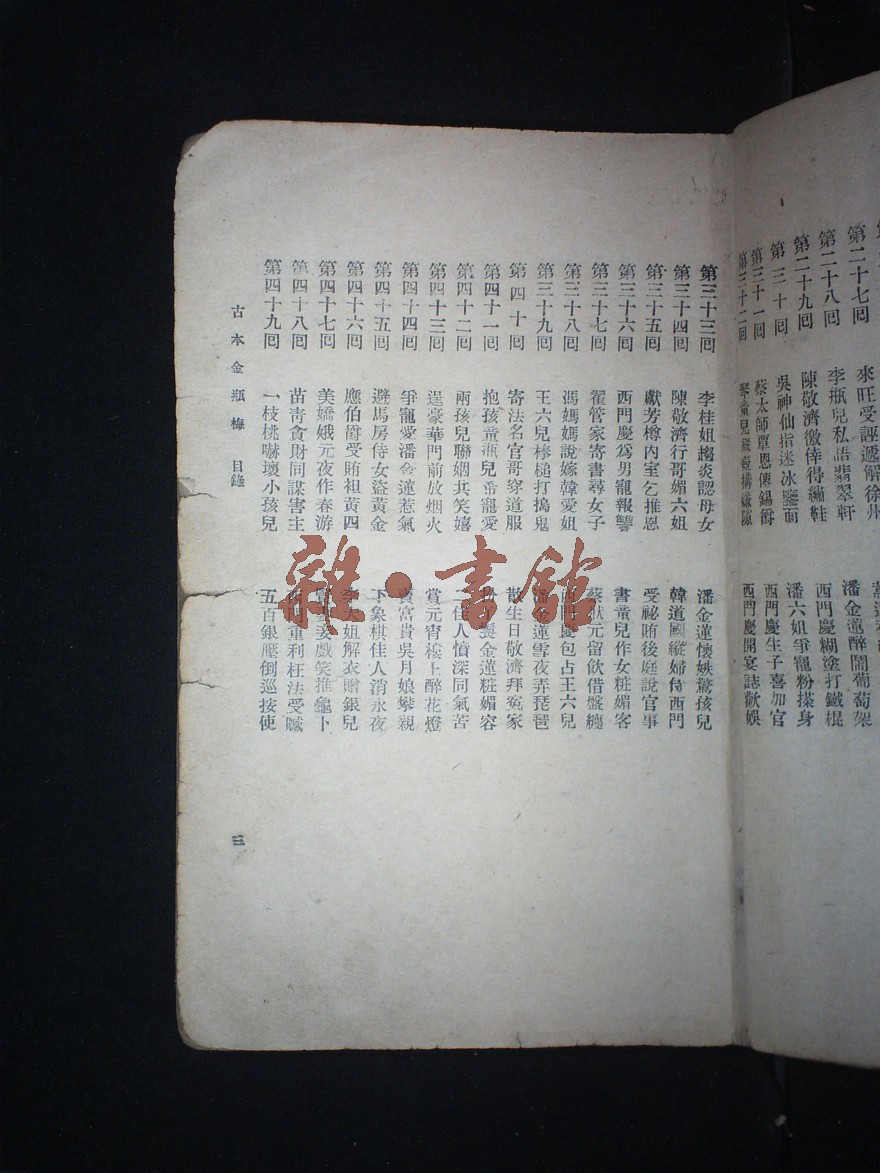 第二十七回 來旺受誣遞解徐州
第二十八回 李瓶兒私語翡翠軒 潘金蓮醉鬧葡萄架
第二十九回 陳敬濟徼倖得繡鞋 西門慶糊塗打鐵棍
第三十回 吳神仙指迷冰鑒面 潘六姐爭寵粉搽身
第三十一回 蔡太師覃恩傳錫爵 西門慶生子喜加官
第三十二回 琴童兒 西門慶開宴誌歡娛
第三十三回 李桂姐趨炎認母女 潘金蓮懷嫉驚孩兒
第三十四回 陳敬濟行哥媚六姐 韓道國縱婦侍西門
第三十五回 獻芳樽內室乞推恩 受祕賄後庭說官事
第三十六回 西門慶爲男寵報讐 書童兒作女粧媚客
第三十七回 翟管家寄書尋女子 蔡狀元留飲借盤纏
第三十八回 馮媽媽說嫁韓愛姐 西門慶包占王六兒
第三十九回 王六兒棒槌打搗鬼 潘金蓮雪夜弄琵琶
第四十回 寄法名官哥穿道服 散生日敬濟拜冤家
第四十一回 抱孩童瓶兒希寵愛 粧丫鬟金蓮粧媚容
第四十二回 兩孩兒聯姻共笑嬉 二佳人憤深同氣苦
第四十三回 逞豪華門前放烟火 賞元宵樓上醉花燈
第四十四回 爭寵愛潘金蓮惹氣 賣富貴吳月娘攀親
第四十五回 避馬房侍女盜黃金 下象棋佳人消永夜
第四十六回 應伯爵受賄袒黃四 李大姐解衣贈銀兒
第四十七回 美嬌娥元夜作春游 妻妾戲笑推龜卜
第四十八回 苗靑貪財同謀害主 西門重利枉法受贓
第四十九回 一枝桃嚇壞小孩兒 五百銀壓倒巡按使
古本金瓶梅 目錄
三
雜·書館